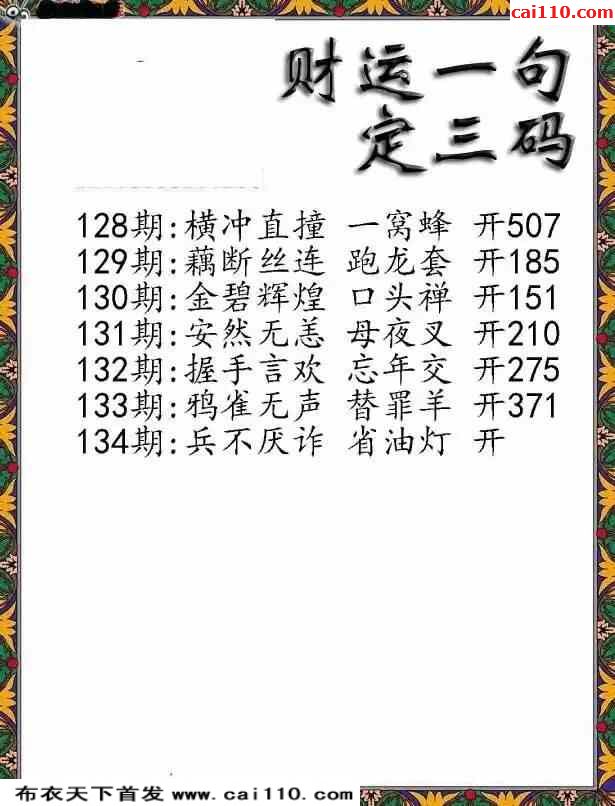 cai110.com
财运一句
定三码
128期:横冲直撞 一窝蜂 开507
129期:藕断丝连 跑龙套 开185
130期:金碧辉煌 口头禅 开151
131期:安然无恙 母夜叉 开210
132期:握手言欢 忘年交 开275
133期:鸦雀无声 替罪羊 开371
134期:兵不厌诈 省油灯 开
布衣天下首发 www.cai110.com